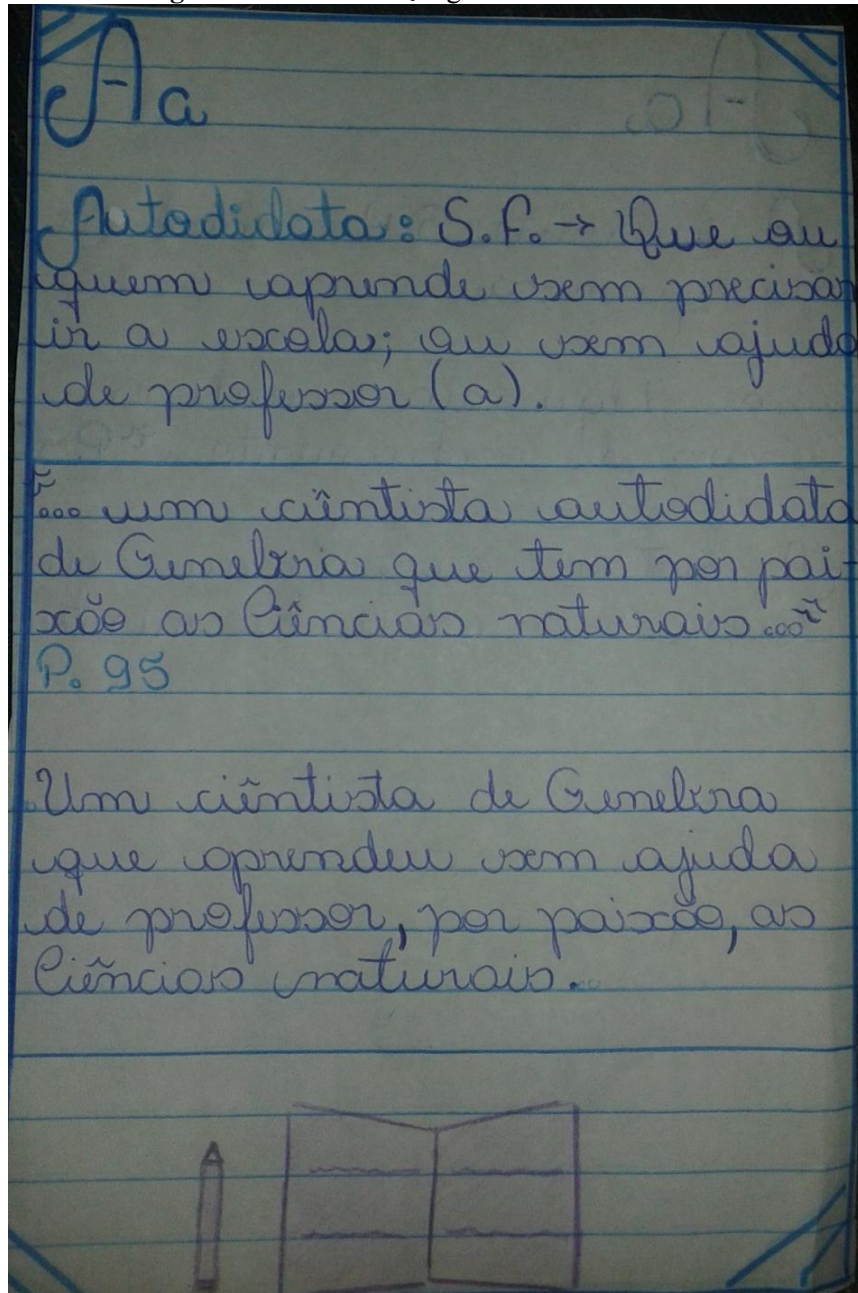 Aa
Autodidata: S.F. → Que ou
quem aprende sem precisar
ir a escola; ou sem ajuda
de professor (a).
"... um ciêntista autodidata
de Genebra que tem por pai-
xão as Ciências naturais..."
P. 95
Um ciêntista de Genebra
que aprendeu sem ajuda
de professor, por paixão, as
Ciências naturais.